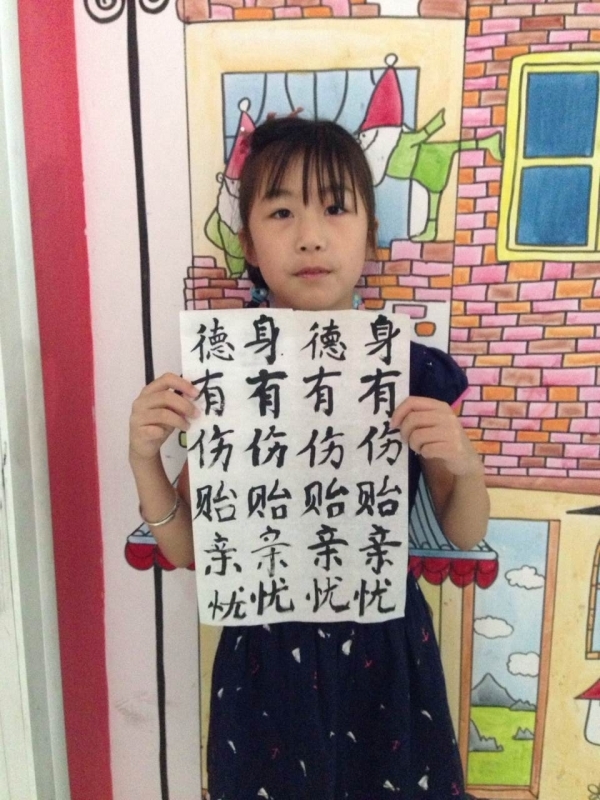 身有伤贻亲忧
德有伤贻亲忧
身有伤贻亲忧
德有伤贻亲忧